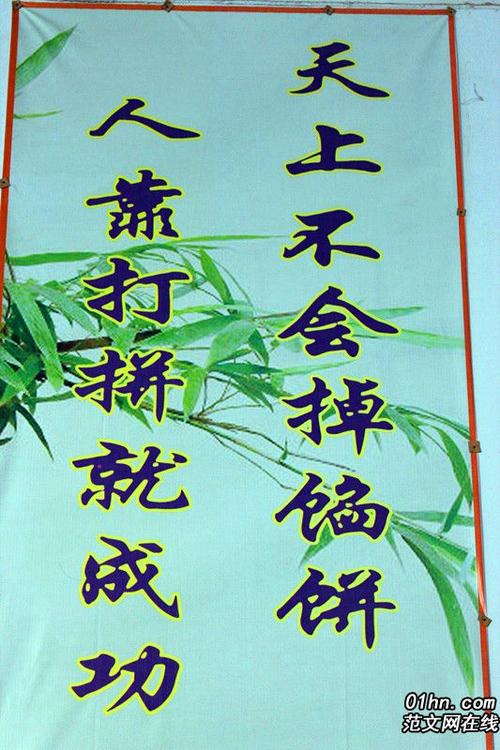 天上不会掉馅饼
人靠打拼就成功
01hn.com
范文网在线